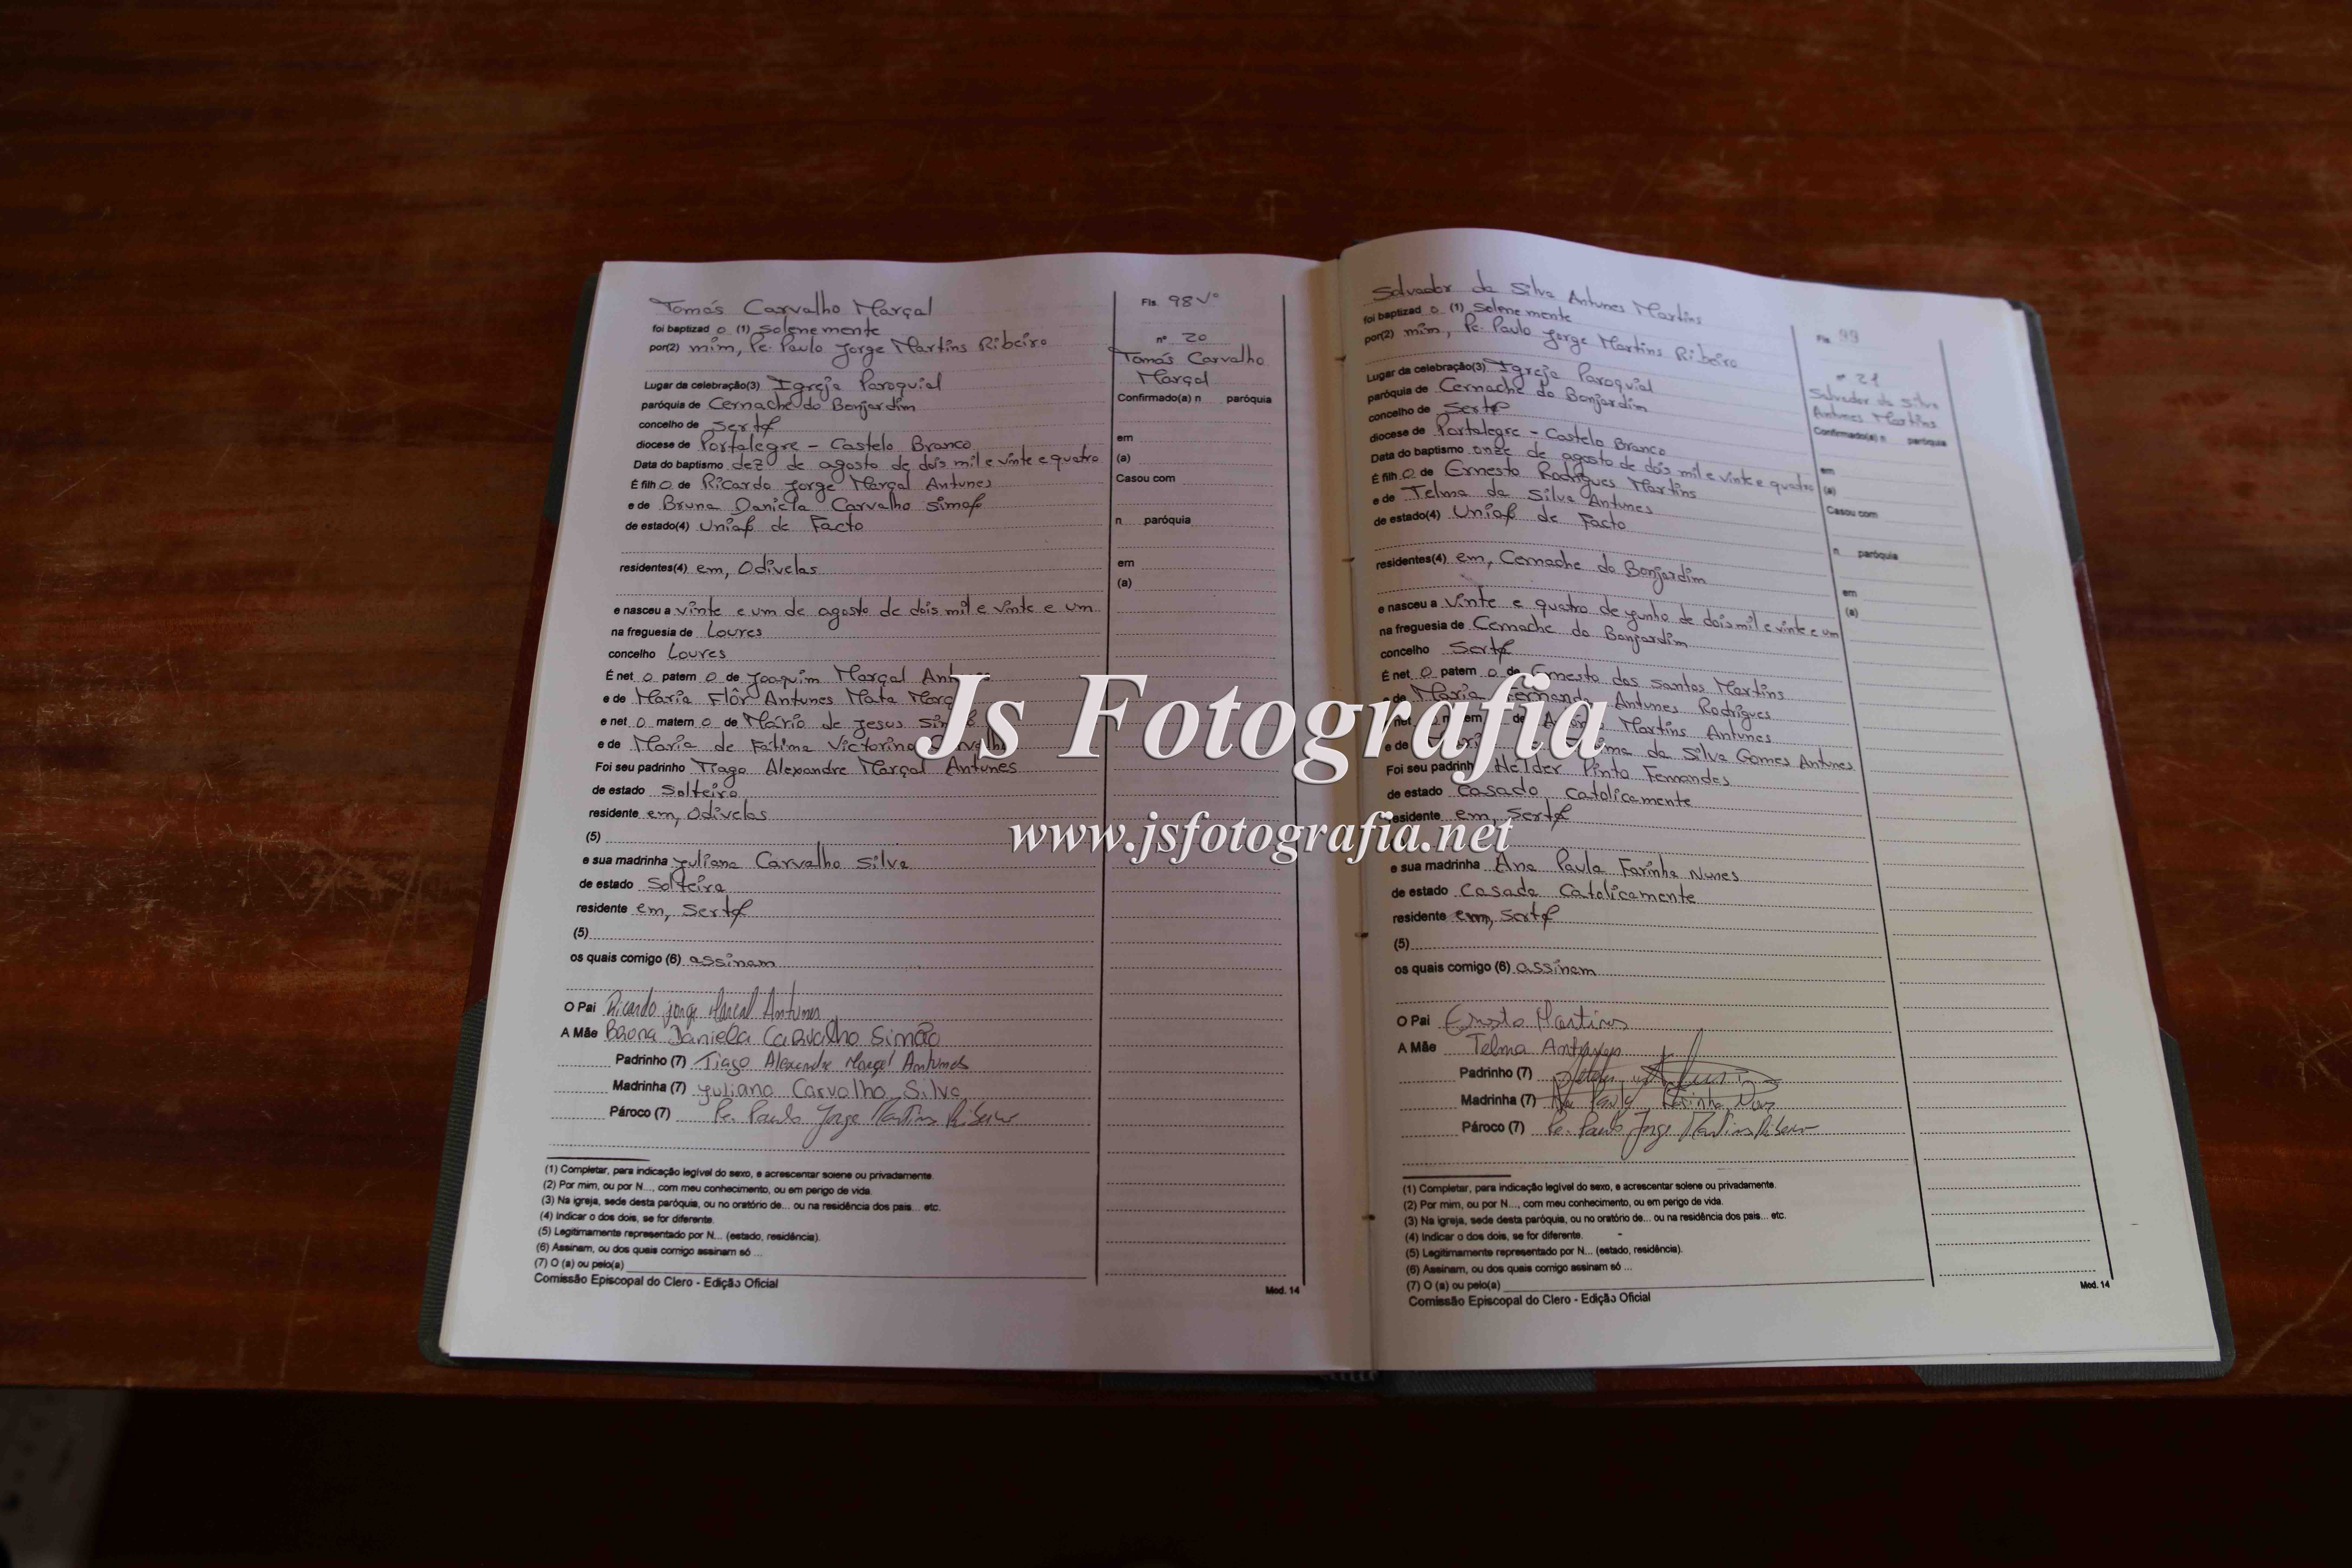 Tomás Carvalho Marçal
foi baptizad o (1) solenemente
por(2) mim, Pe. Paulo Jorge Martins Ribeiro
Lugar da celebração(3) Igreja Paroquial
paróquia de Cernache do Bonjardim
concelho de Sertã
diocese de Portalegre - Castelo Branco
Data do baptismo dez de agosto de dois mil e vinte e quatro
É filh o de Ricardo Jorge Marçal Antunes
e de Bruna Daniela Carvalho Simão
de estado(4) União de Facto
residentes(4) em, Odivelas
e nasceu a vinte e um de agosto de dois mil e vinte e um
na freguesia de Loures
concelho Loures
É net o patern o de Joaquim Marçal
e de Maria Flôr Antunes Mata
e net o matern o de Mário de Jesus
e de Maria de Fátima Victorino
Foi seu padrinho Tiago Alexandre Marçal Antunes
de estado Solteiro
residente em, Odivelas
(5)
e sua madrinha Juliana Carvalho Silva
de estado Solteira
residente em, Sertã
(5)
os quais comigo (6) assinam
O Pai Ricardo Jorge Marçal Antunes
A Mãe Bruna Daniela Carvalho Simão
Padrinho (7) Tiago Alexandre Marçal Antunes
Madrinha (7) Juliana Carvalho Silva
Pároco (7) Pe. Paulo Jorge Martins Ribeiro
(1) Completar, para indicação legível do sexo, e acrescentar solene ou privadamente.
(2) Por mim, ou por N..., com meu conhecimento, ou em perigo de vida.
(3) Na igreja, sede desta paróquia, ou no oratório de... ou na residência dos pais... etc.
(4) Indicar o dos dois, se for diferente.
(5) Legitimamente representado por N... (estado, residência).
(6) Assinam, ou dos quais comigo assinam só ...
(7) O (a) ou pelo(a)
Comissão Episcopal do Clero - Edição Oficial
Fls. 98 Vº
nº 20
Tomás Carvalho
Marçal
Confirmado(a) n paróquia
em
(a)
Casou com
n paróquia
em
(a)
Mod. 14
Salvador da Silva Antunes Martins
foi baptizad o (1) solenemente
por(2) mim, Pe. Paulo Jorge Martins Ribeiro
Lugar da celebração(3) Igreja Paroquial
paróquia de Cernache do Bonjardim
concelho de Sertã
diocese de Portalegre - Castelo Branco
Data do baptismo onze de agosto de dois mil e vinte e quatro
É filh o de Ernesto Rodrigues Martins
e de Telma da Silva Antunes
de estado(4) União de Facto
residentes(4) em, Cernache do Bonjardim
e nasceu a vinte e quatro de junho de dois mil e vinte e um
na freguesia de Cernache do Bonjardim
concelho Sertã
É net o patern o de Ernesto dos Santos Martins
e de Maria Fernanda Antunes Rodrigues
Martins Antunes
da Silva Gomes Antunes
Foi seu padrinho Helder Pinto Fernandes
de estado Casado Catolicamente
residente em, Sertã
e sua madrinha Ana Paula Farinha Nunes
de estado Casada Catolicamente
residente em, Sertã
(5)
os quais comigo (6) assinam
O Pai Ernesto Martins
A Mãe Telma Antunes
Padrinho (7)
Madrinha (7) Ana Paula Farinha Nunes
Pároco (7) Pe. Paulo Jorge Martins Ribeiro
(1) Completar, para indicação legível do sexo, e acrescentar solene ou privadamente.
(2) Por mim, ou por N..., com meu conhecimento, ou em perigo de vida.
(3) Na igreja, sede desta paróquia, ou no oratório de... ou na residência dos pais... etc.
(4) Indicar o dos dois, se for diferente.
(5) Legitimamente representado por N... (estado, residência).
(6) Assinam, ou dos quais comigo assinam só ...
(7) O (a) ou pelo(a)
Comissão Episcopal do Clero - Edição Oficial
Fls. 99
nº 21
Salvador da Silva
Antunes Martins
Confirmado(a) n paróquia
em
(a)
Casou com
n paróquia
em
(a)
Mod. 14
Js Fotografia
www.jsfotografia.net